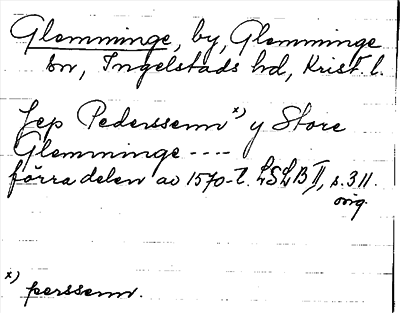 Glemminge, by, Glemminge
sn, Ingelstads hd, Krist. l.
Jep Pederssenn x) y Store
Glemminge ----
förra delen av 1570-t. LSLB II, s. 311.
orig.
x) perssenn.